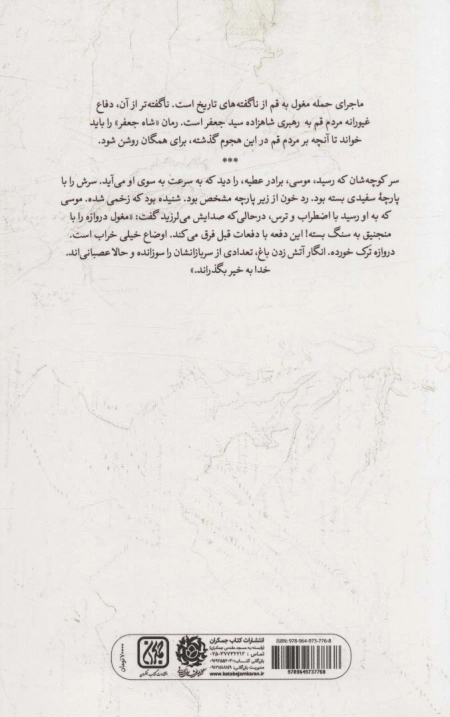 ماجرای حمله مغول به قم از ناگفته‌های تاریخ است. ناگفته‌تر از آن، دفاع
غیورانه مردم قم به رهبری شاهزاده سید جعفر است. رمان «شاه جعفر» را باید
خواند تا آنچه بر مردم قم در این هجوم گذشته، برای همگان روشن شود.
***
سر کوچه‌شان که رسید، موسی، برادر عطیه، را دید که به سرعت به سوی او می‌آید. سرش را با
پارچهٔ سفیدی بسته بود. رد خون از زیر پارچه مشخص بود. شنیده بود که زخمی شده. موسی
که به او رسید با اضطراب و ترس، درحالی‌که صدایش می‌لرزید گفت: «مغول دروازه را با
منجنیق به سنگ بسته! این دفعه با دفعات قبل فرق می‌کند. اوضاع خیلی خراب است.
دروازه تَرَک خورده. انگار آتش زدن باغ، تعدادی از سربازانشان را سوزانده و حالا عصبانی‌اند.
خدا به خیر بگذراند.»
۷۰۰۰۰ تومان
انتشارات کتاب جمکران
(وابسته به مسجد مقدس جمکران)
تماس: ۳۷۷۳۲۲۱۲-۰۲۵
www.ketabejamkaran.ir
978-964-973-776-8
9789649737768